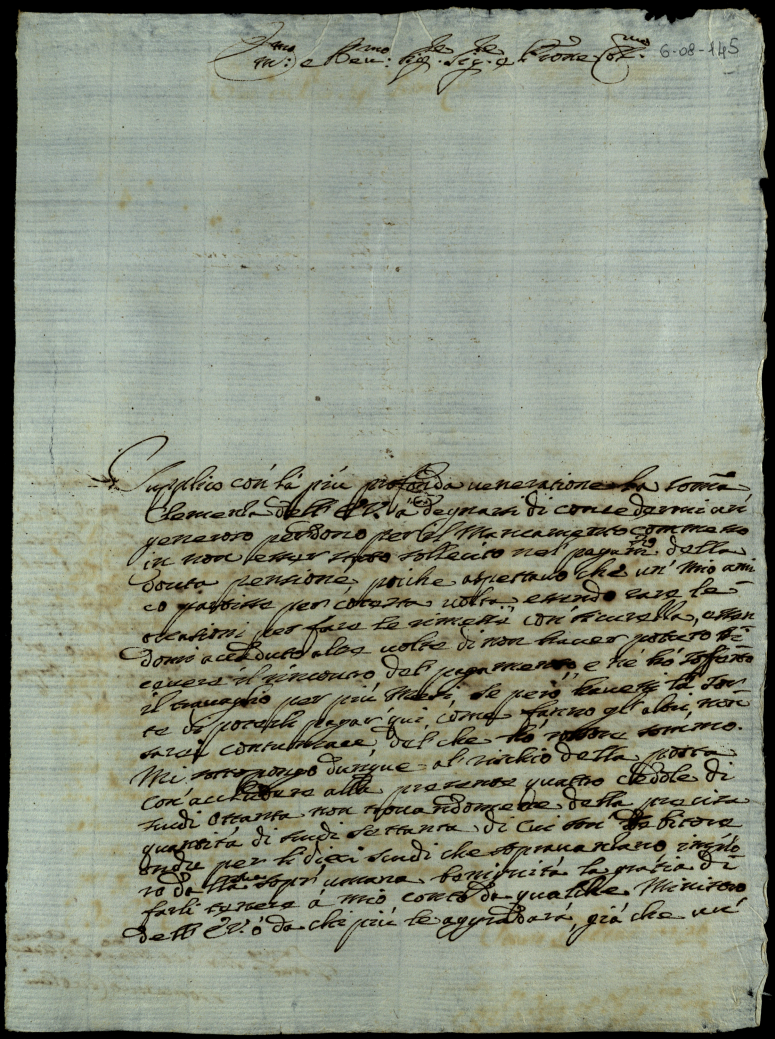 Em.mo e Rev.mo Sig.re Sig.re e P.rone Col.mo 6-08-145
Supplico con la più profonda veneratione la somma
Clemenza dell' E.V. à degnarsi di concedermi un
generoso perdono per il Mancamento commesso
in non esser stato sollecito nel pagam.to della
douta pensione, poiche aspettavo che un' mio ami
co partisse per cotesta volta, essendo rare le
ocasioni per fare le rimesse con' sicurezza, essen
domi acaduto altre volte di non haver potuto ri
cevere il rincontro del pagamento, e ne hò sofferto
il travaglio per più Mesi, se però havessi la sor
te di poterli pagar' qui, come fanno gl' altri, non
sarei contumace, del che hò rossore sommo.
Mi sottopongo dunque al rischio della posta
con' accludere alla presente quattro cedole di
scudi ottanta non trovandomene della precisa
quantità di scudi settanta di cui son' debitore
onde per li dieci scudi che sopravanzano implo
ro dalla sopr' umana benignità la gratia di
farli tenere a mio conto da qualche Ministro
dell' E.V. ò da chi più le aggradarà, già che un'